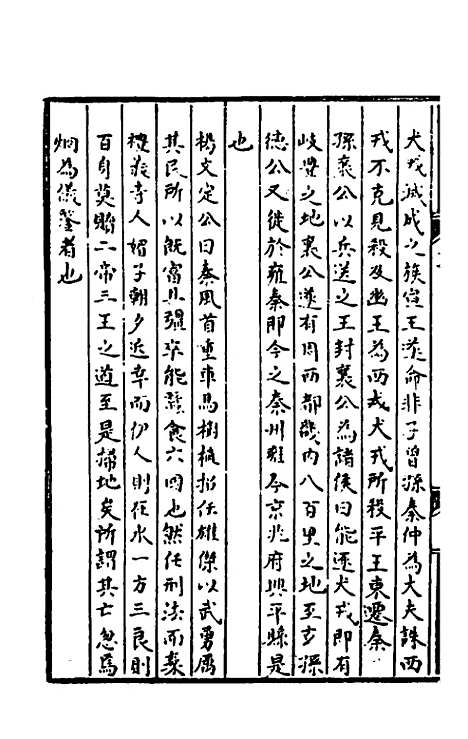 犬戎滅成之族宣王遂命非子曾孫秦仲為大夫誅西
戎不克見殺及幽王為西戎犬戎所殺平王東遷秦仲
孫襄公以兵送之王封襄公為諸侯曰能逐犬戎即有
岐豐之地襄公遂有周西都畿內八百里之地至玄孫
德公又徙於雍秦即今之秦州雍今京兆府興平縣是
也
楊文定公曰秦風首重車馬樹植招任雄傑以武勇厲
其民所以旣富且彊卒能蠶食六國也然任刑法而棄
禮義寺人媚子朝夕近幸而伊人則在水一方三良則
百身莫贖二帝三王之道至是掃地矣所謂其亡忽焉
烱為儀鑒者也